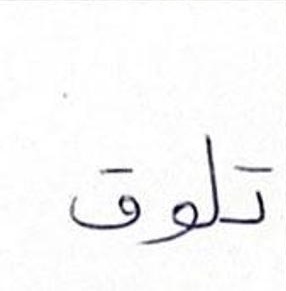 تلوق